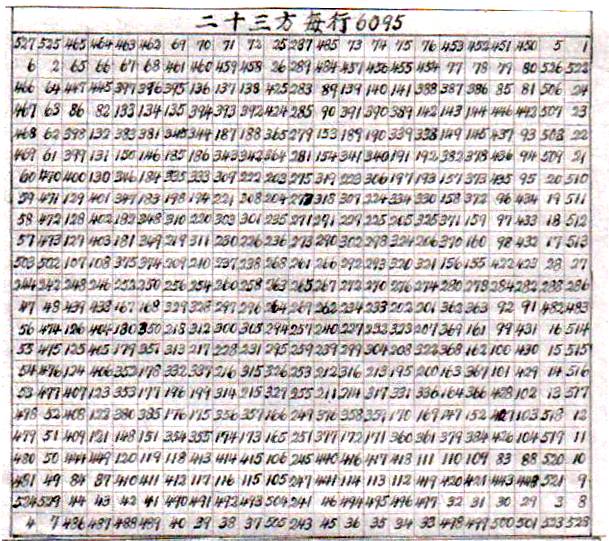 二十三方每行6095
527 525 465 464 463 462 69 70 71 72 25 287 485 73 74 75 76 453 452 451 450 5 1
6 2 65 66 67 68 461 460 459 458 26 289 484 457 456 455 454 77 78 79 80 526 522
466 64 447 445 397 396 395 136 137 138 425 283 89 139 140 141 388 387 386 85 81 506 24
467 63 86 82 133 134 135 394 393 392 424 285 90 391 390 389 142 143 144 446 442 507 23
468 62 398 132 383 381 345 344 187 188 365 279 153 189 190 339 338 149 145 437 93 508 22
469 61 399 131 150 146 185 186 343 342 364 281 154 341 340 191 192 382 378 436 94 509 21
60 470 400 130 346 184 335 333 309 222 203 275 319 223 306 197 193 157 373 435 95 20 510
59 471 129 401 347 183 198 194 221 208 204 277 318 307 224 334 330 158 372 96 434 19 511
58 472 128 402 182 348 310 220 303 301 235 271 291 229 225 205 325 371 159 97 433 18 512
57 473 127 403 181 349 219 311 230 226 236 273 290 302 298 324 206 370 160 98 432 17 513
503 502 107 108 375 374 209 210 237 238 268 261 266 292 293 320 321 156 155 422 423 28 27
244 242 248 246 252 250 256 254 260 258 263 265 267 272 270 276 274 280 278 284 282 288 286
47 48 439 438 167 168 329 328 297 296 264 269 262 234 233 202 201 362 363 92 91 482 483
56 474 126 404 180 350 218 312 300 305 294 257 240 227 232 323 207 369 161 99 431 16 514
55 475 125 405 179 351 313 217 228 231 295 259 239 299 304 208 322 368 162 100 430 15 515
54 476 124 406 352 178 332 337 216 315 326 253 212 316 213 195 200 163 367 101 429 14 516
53 477 407 123 353 177 196 199 314 215 327 255 211 214 317 331 336 164 366 428 102 13 517
478 52 408 122 380 385 176 175 356 357 166 249 376 358 359 170 169 147 152 427 103 518 12
479 51 409 121 148 151 354 355 174 173 165 251 377 172 171 360 361 379 384 426 104 519 11
480 50 444 449 120 119 118 413 414 415 106 245 440 416 417 418 111 110 109 83 88 520 10
481 49 84 87 410 411 412 117 116 115 105 247 441 114 113 112 419 420 421 443 448 521 9
524 529 44 43 42 41 490 491 492 493 504 241 46 494 495 496 497 32 31 30 29 3 8
4 7 486 487 488 489 40 39 38 37 505 243 45 36 35 34 33 498 499 500 501 523 528